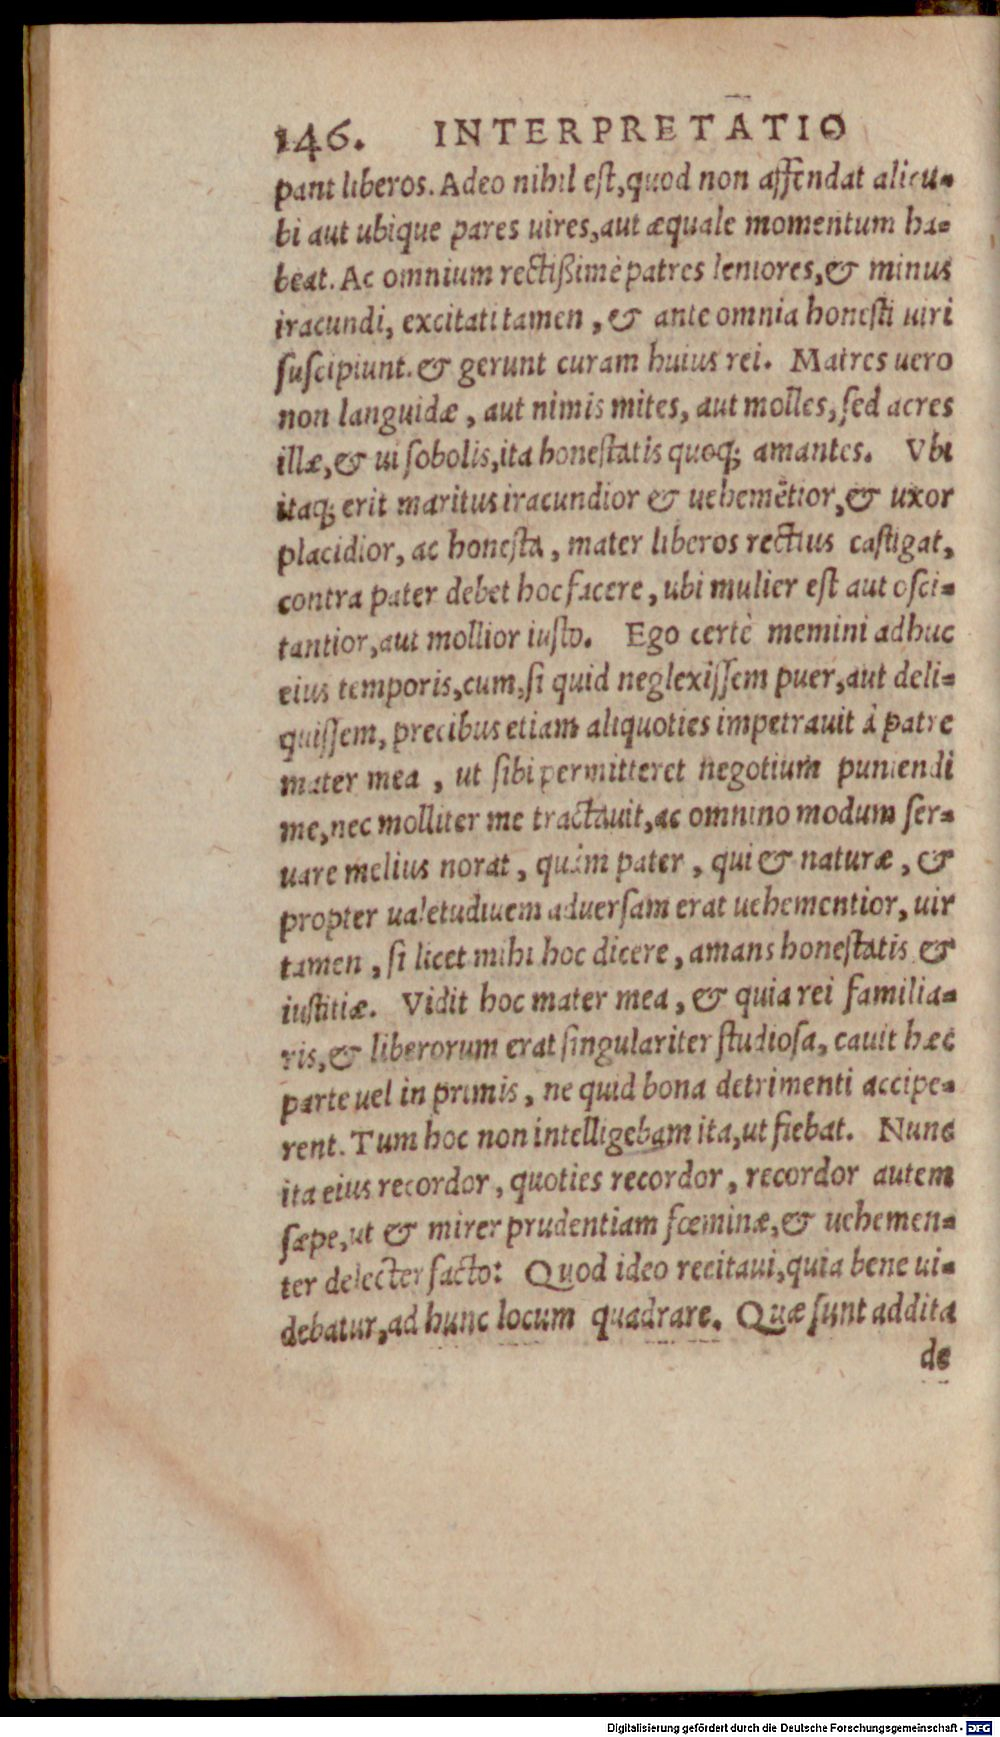 146. INTERPRETATIO
pant liberos. Adeo nihil est, quod non affendat alicu-
bi aut ubique pares uires, aut æquale momentum ha-
beat. Ac omnium rectißimè patres leniores, & minus
iracundi, excitati tamen, & ante omnia honesti uiri
suscipiunt. & gerunt curam huius rei. Matres uero
non languidæ, aut nimis mites, aut molles, sed acres
illæ, & ui sobolis, ita honestatis quoq; amantes. Vbi
itaq; erit maritus iracundior & uehemẽtior, & uxor
placidior, ac honesta, mater liberos rectius castigat,
contra pater debet hoc facere, ubi mulier est aut osci-
tantior, aut mollior iusto. Ego certè memini adhuc
eius temporis, cum, si quid neglexissem puer, aut deli-
quissem, precibus etiam aliquoties impetrauit à patre
mater mea, ut sibi permitteret negotium puniendi
me, nec molliter me tractauit, ac omnino modum ser-
uare melius norat, quàm pater, qui & naturæ, &
propter ualetudinem aduersam erat uehementior, uir
tamen, si licet mihi hoc dicere, amans honestatis &
iustitiæ. Vidit hoc mater mea, & quia rei familia-
ris, & liberorum erat singulariter studiosa, cauit hac
parte uel in primis, ne quid bona detrimenti accipe-
rent. Tum hoc non intelligebam ita, ut fiebat. Nunc
ita eius recordor, quoties recordor, recordor autem
sæpe, ut & mirer prudentiam fœminæ, & uehemen-
ter delecter facto: Quod ideo recitaui, quia bene ui-
debatur, ad hunc locum quadrare. Quæ sunt addita
de
Digitalisierung gefördert durch die Deutsche Forschungsgemeinschaft - DFG